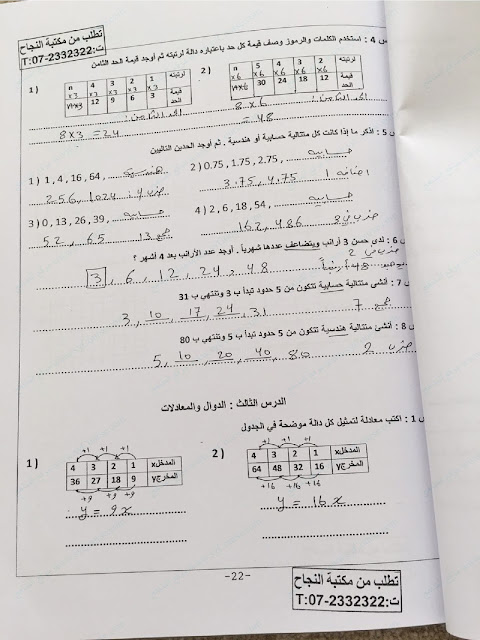 تطلب من مكتبة النجاح
ت:T:07-2332322
س 4 : استخدم الكلمات والرموز وصف قيمة كل حد باعتباره دالة لرتبته ثم أوجد قيمة الحد الثامن
1)
n 4 3 2 1 لرتبته
x3 x3 x3 x3 x3
12 9 6 3 قيمة الحد
الحد الثامن:
8 x 3 = 24
2)
n 5 4 3 2 لرتبته
x6 x6 x6 x6 x6
30 24 18 12 قيمة الحد
الحد الثامن:
8 x 6
= 48
س 5 : اذكر ما إذا كانت كل متتالية حسابية أو هندسية . ثم أوجد الحدين التاليين
1) 1 , 4 , 16 , 64 , هندسية
256 , 1024 ضرب 4
2) 0.75 , 1.75 , 2.75 , حسابية
3.75 , 4.75 اضافة 1
3) 0 , 13 , 26 , 39 , حسابية
52 , 65 جمع 13
4) 2 , 6 , 18 , 54 , هندسية
162 , 486 ضرب في 3
س 6 : لدى حسن 3 أرانب ويتضاعف عددها شهرياً . أوجد عدد الأرانب بعد 4 أشهر ؟
3 , 6 , 12 , 24 , 48 ضرب في 2
48 أرنباً
س 7 : أنشئ متتالية حسابية تتكون من 5 حدود تبدأ ب 3 وتنتهي ب 31
3 , 10 , 17 , 24 , 31 جمع 7
س 8 : أنشئ متتالية هندسية تتكون من 5 حدود تبدأ ب 5 وتنتهي ب 80
5 , 10 , 20 , 40 , 80 ضرب 2
الدرس الثالث : الدوال والمعادلات
س 1 : اكتب معادلة لتمثيل كل دالة موضحة في الجدول
1)
+1 +1 +1
4 3 2 1 المدخل x
36 27 18 9 المخرج y
+9 +9 +9
y = 9x
2)
+1 +1 +1
4 3 2 1 المدخل x
64 48 32 16 المخرج y
+16 +16 +16
y = 16x
-22-
تطلب من مكتبة النجاح
ت:T:07-2332322